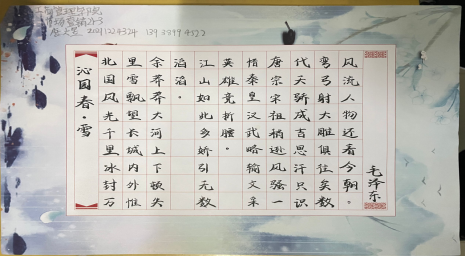 管理学院
市场营销21-3
沁园春·雪
北国风光千里冰封万
里雪飘望长城内外惟
余莽莽大河上下顿失
滔滔。
江山如此多娇引无数
英雄竞折腰。
惜秦皇汉武略输文采
唐宗宋祖稍逊风骚一
代天骄成吉思汗只识
弯弓射大雕俱往矣数
风流人物还看今朝。
毛泽东